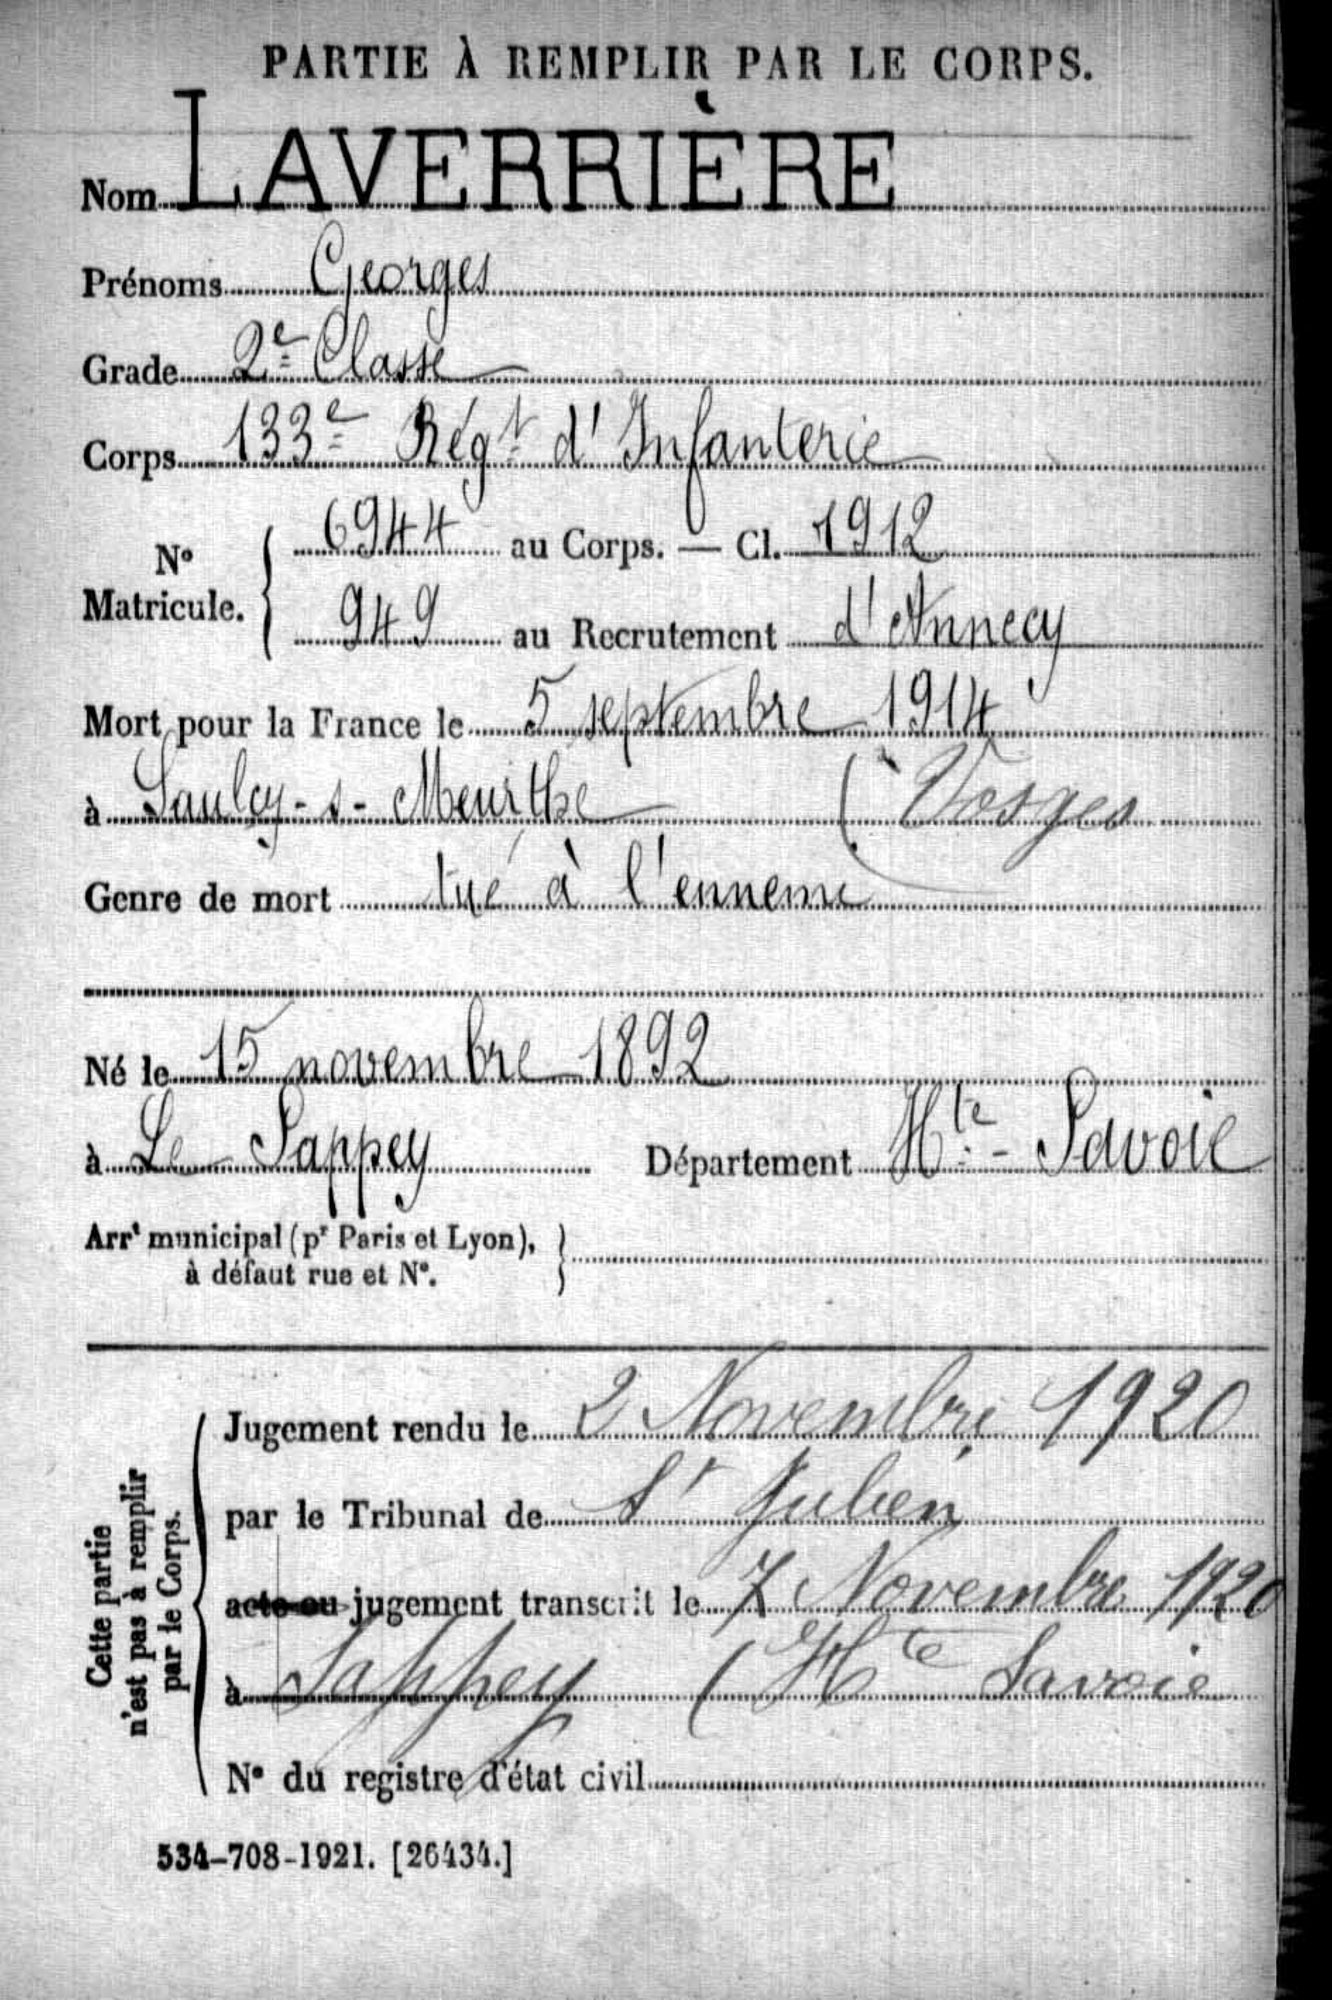 PARTIE À REMPLIR PAR LE CORPS.
Nom LAVERRIÈRE
Prénoms Georges
Grade 2e Classe
Corps 133e Régt d'Infanterie
No Matricule. { 6944 au Corps. — Cl. 1912
949 au Recrutement d'Annecy
Mort pour la France le 5 septembre 1914
à Saulcy-s-Meurthe (Vosges
Genre de mort tué à l'ennemi
Né le 15 novembre 1892
à Le Sappey Département Hte-Savoie
Arrt municipal (pr Paris et Lyon), }
à défaut rue et No.
Cette partie
n'est pas à remplir
par le Corps.
Jugement rendu le 2 Novembre 1920
par le Tribunal de St Julien
acte ou jugement transcrit le 7 Novembre 1920
à Sappey (Hte Savoie
No du registre d'état civil
534-708-1921. [26434.]